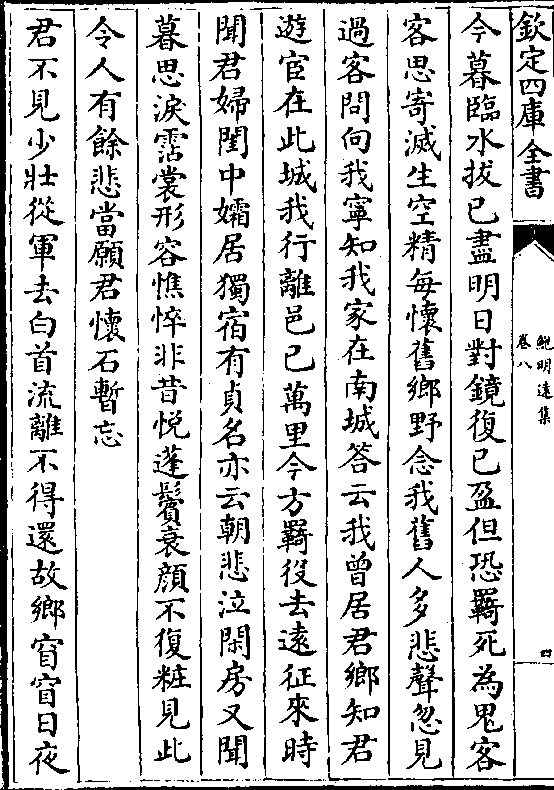 欽定四庫全書
鮑明遠集
卷八
四
今暮臨水拔已盡明日對鏡復已盈但恐羇死為鬼客
客思寄滅生空精每懷舊鄉野念我舊人多悲聲忽見
過客問向我寧知我家在南城答云我曾居君鄉知君
遊宦在此城我行離邑已萬里今方羇役去遠征來時
聞君婦閨中孀居獨宿有貞名亦云朝悲泣閑房又聞
暮思淚霑裳形容憔悴非昔悦蓬鬢衰顔不復粧見此
令人有餘悲當願君懷石暫忘
君不見少壯從軍去白首流離不得還故鄉窅窅日夜